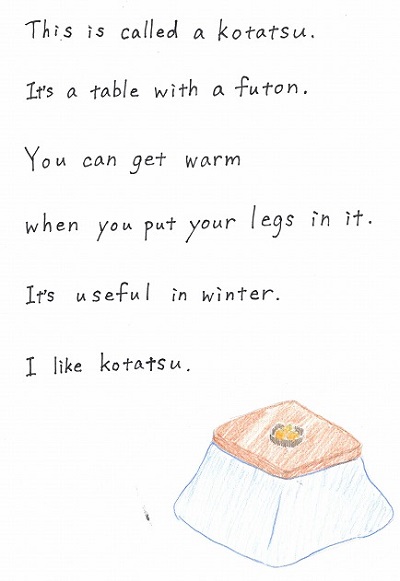 This is called a kotatsu.
It's a table with a futon.
You can get warm
when you put your legs in it.
It's useful in winter.
I like kotatsu.